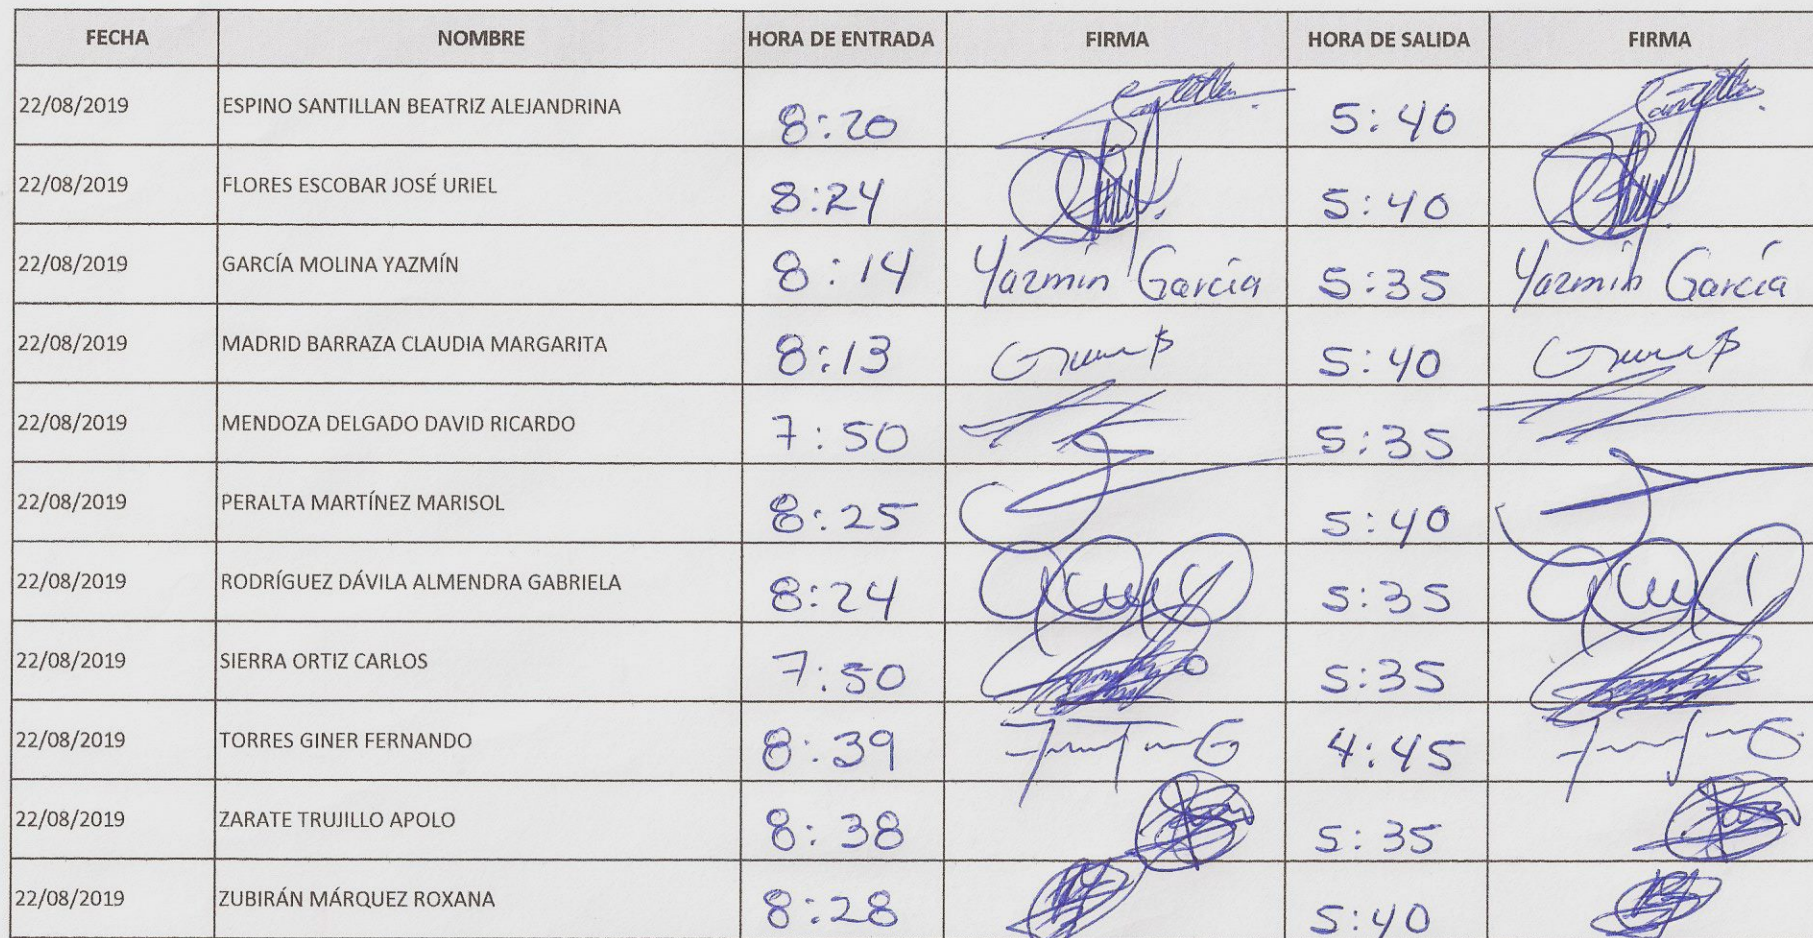 FECHA NOMBRE HORA DE ENTRADA FIRMA HORA DE SALIDA FIRMA
22/08/2019 ESPINO SANTILLAN BEATRIZ ALEJANDRINA 8:20 5:40
22/08/2019 FLORES ESCOBAR JOSÉ URIEL 8:24 5:40
22/08/2019 GARCÍA MOLINA YAZMÍN 8:14 Yazmín García 5:35 Yazmín García
22/08/2019 MADRID BARRAZA CLAUDIA MARGARITA 8:13 5:40
22/08/2019 MENDOZA DELGADO DAVID RICARDO 7:50 5:35
22/08/2019 PERALTA MARTÍNEZ MARISOL 8:25 5:40
22/08/2019 RODRÍGUEZ DÁVILA ALMENDRA GABRIELA 8:24 5:35
22/08/2019 SIERRA ORTIZ CARLOS 7:50 5:35
22/08/2019 TORRES GINER FERNANDO 8:39 4:45
22/08/2019 ZARATE TRUJILLO APOLO 8:38 5:35
22/08/2019 ZUBIRÁN MÁRQUEZ ROXANA 8:28 5:40